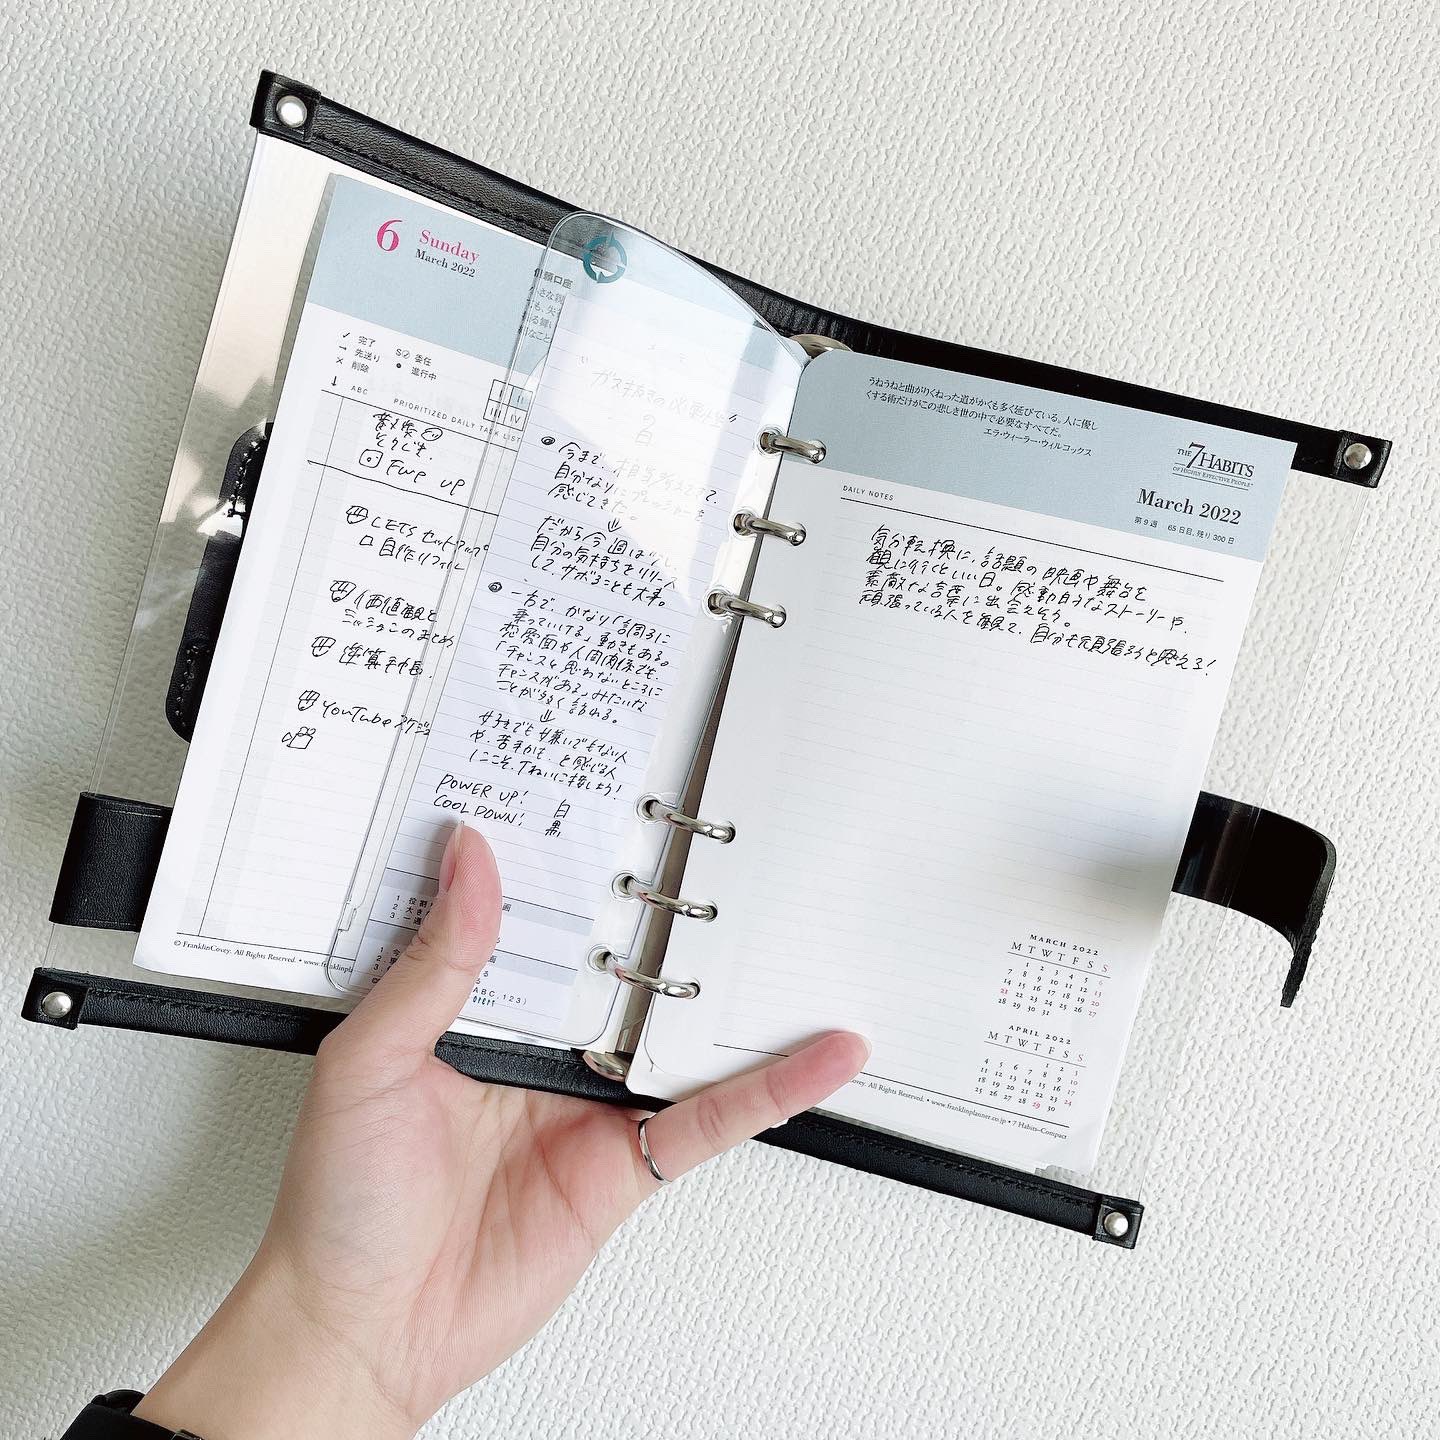 6 Sunday
March 2022
信頼口座
✓ 完了
→ 先送り
× 削除
委任
● 進行中
↓ ABC PRIORITIZED DAILY TASK LIST
II
III IV
そうじき
up
LETS セットアップ
□ 自作リフィル
価値観と
ミッションのまとめ
逆算手帳.
YouTube スケジュ
© FranklinCovey. All Rights Reserved. • www.franklinpl
"ガス抜きの必要性"
◎ 今まで、相当
感じてきた。
⇓
だから今週は
自分の気持ちをリリース
して、サボることも大事。
◎ 一方で、かなり「調子に
乗っていける」動きもある。
恋愛面や人間関係でも、
「チャンスと思わないところに
チャンスがある」みたいな
ことが多く訪れる。
⇓
好きでも嫌いでもない人
や、苦手かも、と感じる人
にこそ、丁ねいに接しよう!
POWER UP! 白
COOL DOWN! 黒
1 役割
2 大き
3 一週
画
ABC,123)
うねうねと曲がりくねった道がかくも多く延びている。人に優し
くする術だけがこの悲しき世の中で必要なすべてだ。
エラ・ウィーラー・ウィルコックス
THE 7 HABITS
OF HIGHLY EFFECTIVE PEOPLE
March 2022
第9週 65日目,残り300日
DAILY NOTES
気分転換に、話題の映画や舞台を
観に行くといい日。感動的なストーリーや、
素敵な言葉に出会えそう。
頑張っている人を観て、自分も頑張ろうと思える!
MARCH 2022
M T W T F S S
1 2 3 4 5 6
7 8 9 10 11 12 13
14 15 16 17 18 19 20
21 22 23 24 25 26 27
28 29 30 31
APRIL 2022
M T W T F S S
1 2 3
4 5 6 7 8 9 10
11 12 13 14 15 16 17
18 19 20 21 22 23 24
25 26 27 28 29 30
Covey. All Rights Reserved. • www.franklinplanner.co.jp • 7 Habits–Compact